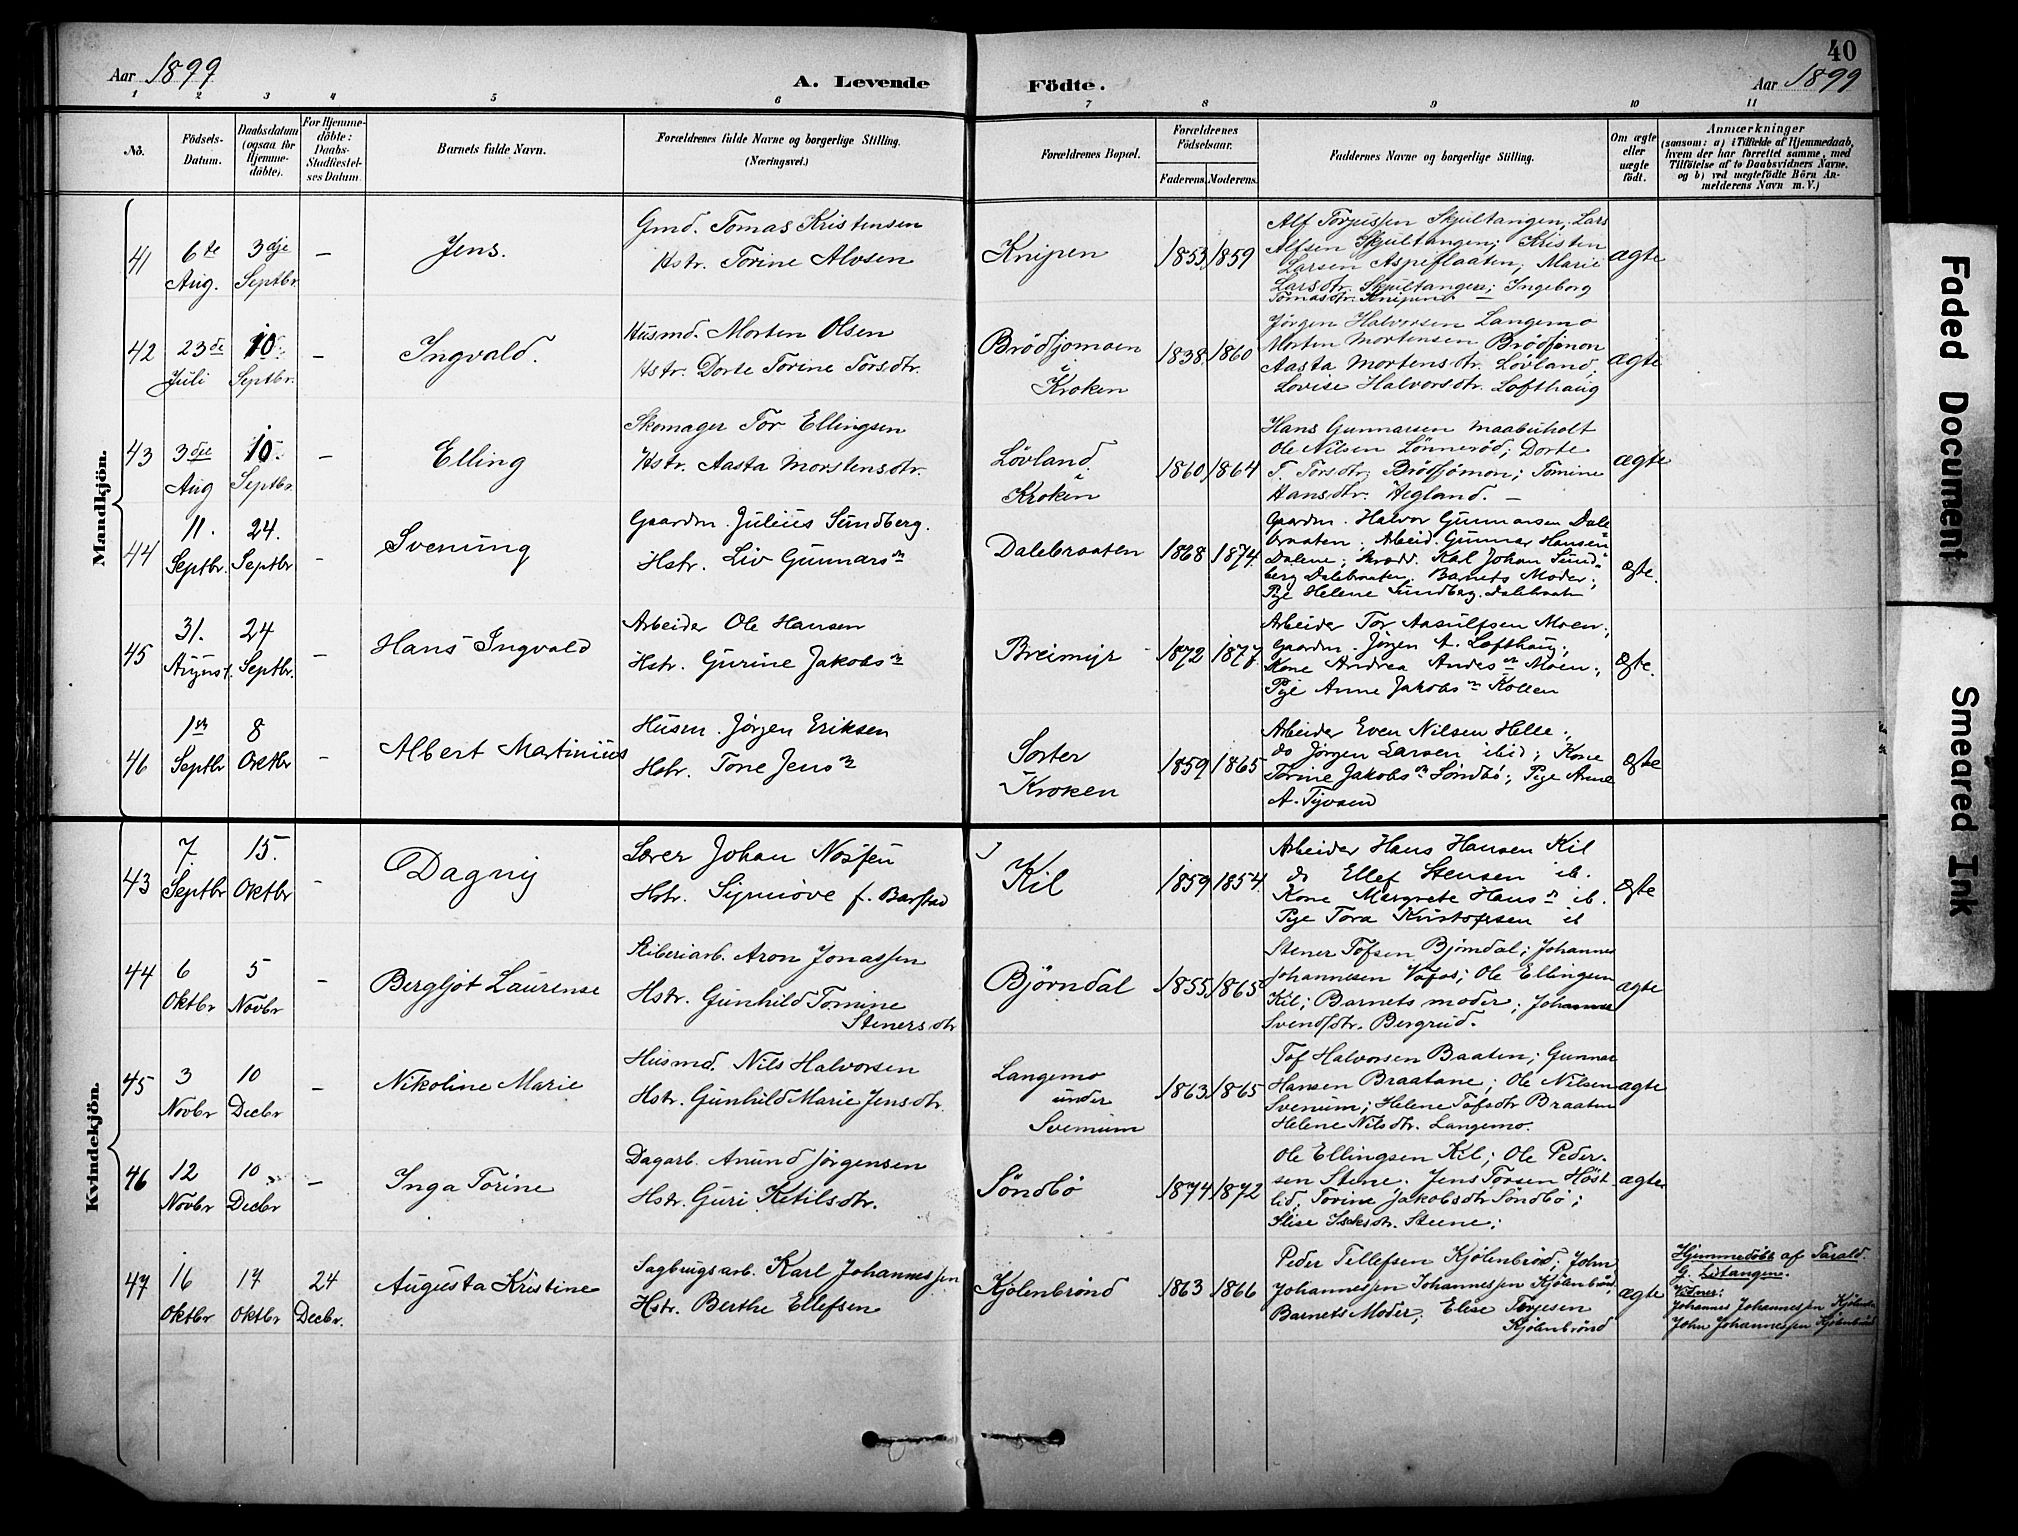 40
Aar 1899
A. Levende
Födte.
Aar 1899
1 2 3 4 5 6 7 8 9 10 11
No.
Födsels-
Datum.
Daabsdatum
(ogsaa for
Hjemme-
döbte).
For Hjemme-
döbte:
Daabs-
Stadfæstel-
ses Datum.
Barnets fulde Navn.
Forældrenes fulde Navne og borgerlige Stilling.
(Næringsvei.)
Forældrenes Bopæl.
Forældrenes
Födselsaar.
Faderens.
Moderens.
Faddernes Navne og borgerlige Stilling.
Om ægte
eller
uægte
födt.
Anmærkninger
(saasom: a) i Tilfælde af Hjemmedaab,
hvem der har forrettet samme, med
Tilföielse af to Daabsvidners Navne,
og b) ved uægtefödte Börn An-
melderens Navn m. V.)
Mandkjön.
41
6te
Aug.
3dje
Septbr
–
Jens.
Gmd. Tomas Kristensen
Hstr. Torine Alvsen
Knipen
1853
1859
Alf Torjussen Skjultangen; Lars
Alfsen Skjultangen; Kristen
Larsen Aspeflaaten; Marie
Larsdtr. Skjultangen; Ingeborg
Tomasdtr. Knipen –
ægte
42
23de
Juli
10.
Septbr.
–
Ingvald.
Husmd. Morten Olsen
Hstr. Dorte Torine Torsdtr.
Brödsjomoen
i
Kroken
1838
1860
Jørgen Halvorsen Langemo
Morten Mortensen Brödsjmon
Aasta Mortensdtr. Lövland
Lovise Halvorsdtr. Lofthaug
ægte
43
3die
Aug
10.
Septbr
–
Elling
Skomager Tor Ellingsen
Hstr. Aasta Morstensdtr.
Lövland
i
Kroken
1860
1864
Hans Gunnarsen Maabuholt
Ole Nilsen Lönneröd; Dorte
T. Torsdtr. Brödsjömon; Tomine
Hansdtr. Hegland. –
ægte
44
11.
Septbr.
24.
Septbr
–
Svenung
Gaardm. Julius Sundberg.
Hstr. Liv Gunnarsn
Dalebraaten
1868
1874
Gaardm. Halvor Gunnarsen Dale
braaten. Arbeid. Gunnar Hansen
Dalene; Skrædd. Karl Johan Sund-
berg Dalebraaten. Barnets Moder;
Pge Helene Sundberg. Dalebraaten
ægte.
45
31.
August.
24
Septbr.
–
Hans Ingvald
Arbeider Ole Hansen
Hstr. Gurine Jakobsn
Breimyr
1872
1877
Arbeider Tor Aasulfsen Moen;
Gaardm. Jörgen A. Lofthaug;
Kone Andrea Andesn Moen;
Pige Anne Jakobsn Kollen
ægte.
46
1ste
Septbr
8
Oktbr
–
Albert Martinius
Husm. Jörgen Eriksen
Hstr. Tone Jensn
Sorter
Kroken
1859
1865
Arbeider Even Nilsen Helle;
do Jörgen Larsen ibid; Kone
Torine Jakobsn Söndbö; Pige Anne
A.
ægte
Kvindekjön.
43
7.
Septbr
15.
Oktbr
–
Dagny
Lærer Johan Nossen
Hstr. Signiöve f. Barstad
Kil
1859
1854
Arbeider Hans Hansen Kil
do Ellef Stensen ib.
Kone Margrete Hansn ib.
Pige Tora Kristofersen ib
ægte
44
6
Oktbr
5
Novbr
–
Bergljot Laurense
Sliberiarb. Aron Jonassen
Hstr. Gunhild Tomine
Stenersdtr
Björndal
1855
1865
Stener Tofsen Björndal; Johannes
Johannesen Vafos; Ole Ellingsen
Kil; Barnets moder; Johanne
Svendsdtr. Bergrud.
ægte
45
3
Novbr
10
Decbr
–
Nikoline Marie
Husmd. Nils Halvorsen
Hstr. Gunhild Marie Jensdtr.
Langemo
under
Svenum
1863
1865
Tof Halvorsen Baaten; Gunnar
Hansen Braatane; Ole Nilsen
Svenum; Helene Tofsdtr Braaten
Helene Nilsdtr. Langemo.
ægte
46
12
Novbr
10
Decbr
–
Inga Torine
Dagarb. Anund Jörgensen
Hstr. Guri Ketilsdtr.
Söndbö
1874
1872
Ole Ellingsen Kil; Ole Peder-
sen Stene. Jens Torsen Höst
lid; Torine Jakobsdtr Söndbö;
Elise Isaksdtr. Steene;
ægte
47
16
Oktbr
17
Oktbr
24
Decbr.
Augusta Kristine
Sagbrugsarb. Karl Johannessen
Hstr. Berthe Ellefsen
Kjölenbrönd
1863
1866
Peder Tellefsen Kjölenbröd; John
Johannessen Johannessen Kjölenbrönd,
Barnets Moder; Elise Terjesen
Kjölenbrönd
ægte
Hjemmedöbt af Tarald
G. Litangen.
Vidner:
Johannes Johannessen Kjölenbr
John Johannessen Kjölenbrönd
Faded Document
Smeared Ink